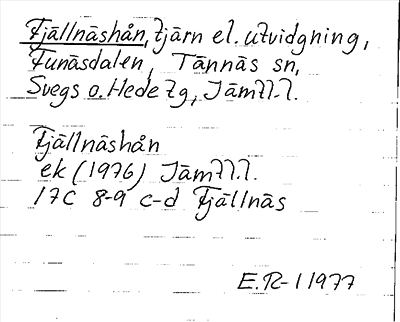 Fjällnäshån, tjärn el. utvidgning,
Funäsdalen, Tännäs sn,
Svegs o. Hede tg, Jämtl. l.
Fjällnäshån
ek (1976) Jämtl. l.
17C 8-9 c-d Fjällnäs
E.R-l 1977